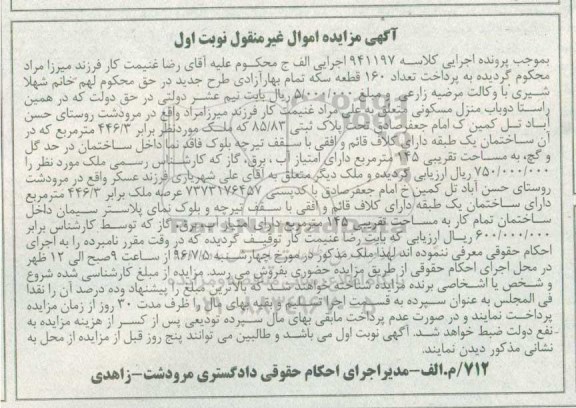 آگهی مزایده اموال غیرمنقول نوبت اول
بموجب پرونده اجرایی کلاسه ۹۴۱۱۹۷ اجرایی الف ج محکوم علیه آقای رضا غنیمت کار فرزند میرزا مراد
محکوم گردیده به پرداخت تعداد ۱۶۰ قطعه سکه تمام بهارآزادی طرح جدید در حق محکوم لهم خانم شهلا
شیری با وکالت مرضیه زارعی و مبلغ ۵/۰۰۰/۰۰۰ ریال بابت نیم عشر دولتی در حق دولت که در همین
راستا دوباب منزل مسکونی متعلق با علی مراد غنیمت کار فرزند میرزامراد واقع در مرودشت روستای حسن
آباد تل کمین ک امام جعفرصادق تحت پلاک ثبتی ۸۵/۸۳ که ملک موردنظر برابر ۴۴۶/۳ مترمربع که در
آن ساختمان یک طبقه دارای کلاف قائم و افقی با سقف تیرچه بلوک فاقد نما داخل ساختمان در حد گل
و گچ، به مساحت تقریبی ۱۴۵ مترمربع دارای امتیاز آب ، برق، گاز که کارشناس رسمی ملک مورد نظر را
۷۵۰/۰۰۰/۰۰۰ ریال ارزیابی گردیده و ملک دیگر متعلق به آقای علی شهریاری فرزند عسکر واقع در مرودشت
روستای حسن آباد تل کمین خ امام جعفرصادق با کدپستی ۷۳۷۳۱۷۶۴۵۷ عرصه ملک برابر ۴۴۶/۳ مترمربع
دارای ساختمان یک طبقه دارای کلاف قائم و افقی با سقف تیرچه و بلوک نمای پلاستر سیمان داخل
ساختمان تمام کار به مساحت تقریبی ۱۴۵ مترمربع دارای امتیاز آب، برق، گاز که توسط کارشناس برابر
۶۰۰/۰۰۰/۰۰۰ ریال ارزیابی که بابت رضا غنیمت کار توقیف گردیده که در وقت مقرر نامبرده را به اجرای
احکام حقوقی معرفی ننموده اند لهذا ملک مذکور در مورخ چهارشنبه ۹۶/۷/۵ از ساعت ۹صبح الی ۱۲ ظهر
در محل اجرای احکام حقوقی از طریق مزایده حضوری بفروش می رسد. مزایده از مبلغ کارشناسی شده شروع
و شخص یا اشخاصی برنده مزایده شناخته خواهند شد که بالاترین مبلغ را پیشنهاد وده درصد آن را نقدا
فی المجلس به عنوان سپرده به قسمت اجرا پرداخت و مابقی بهای مال را ظرف مدت ۳۰ روز از زمان مزایده
پرداخت نمایند و در صورت عدم پرداخت مابقی بهای مال سپرده تودیعی پس از کسر از هزینه مزایده به
نفع دولت ضبط خواهد شد. آگهی نوبت اول می باشد و طالبین می توانند پنج روز قبل از مزایده از محل به
نشانی مذکور دیدن نمایند.
۷۱۲/م.الف-مدیراجرای احکام حقوقی دادگستری مرودشت-زاهدی